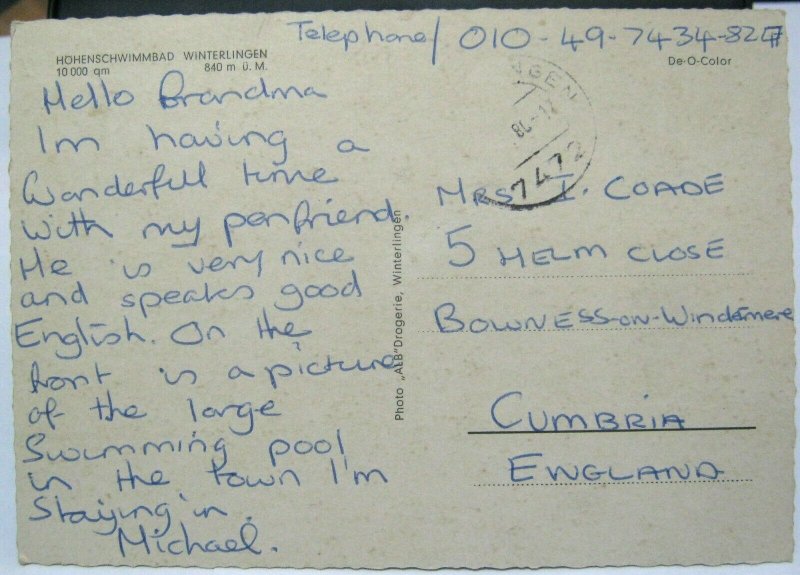 Telephone/ 010-49-7434-82
HÖHENSCHWIMMBAD WINTERLINGEN
10 000 qm 840 m ü. M.
De-O-Color
Hello Grandma
Im having a
Wonderfull time
with my penfriend.
He is very nice
and speaks good
English. On the
front is a picture
of the large
Swimming pool
in the town I'm
Staying in.
Michael.
Photo „ALB"Drogerie, Winterlingen
NGEN
7472
MRS I. COADE
5 HELM CLOSE
BOWNESS-ON-WINDERMERE
CUMBRIA
ENGLAND